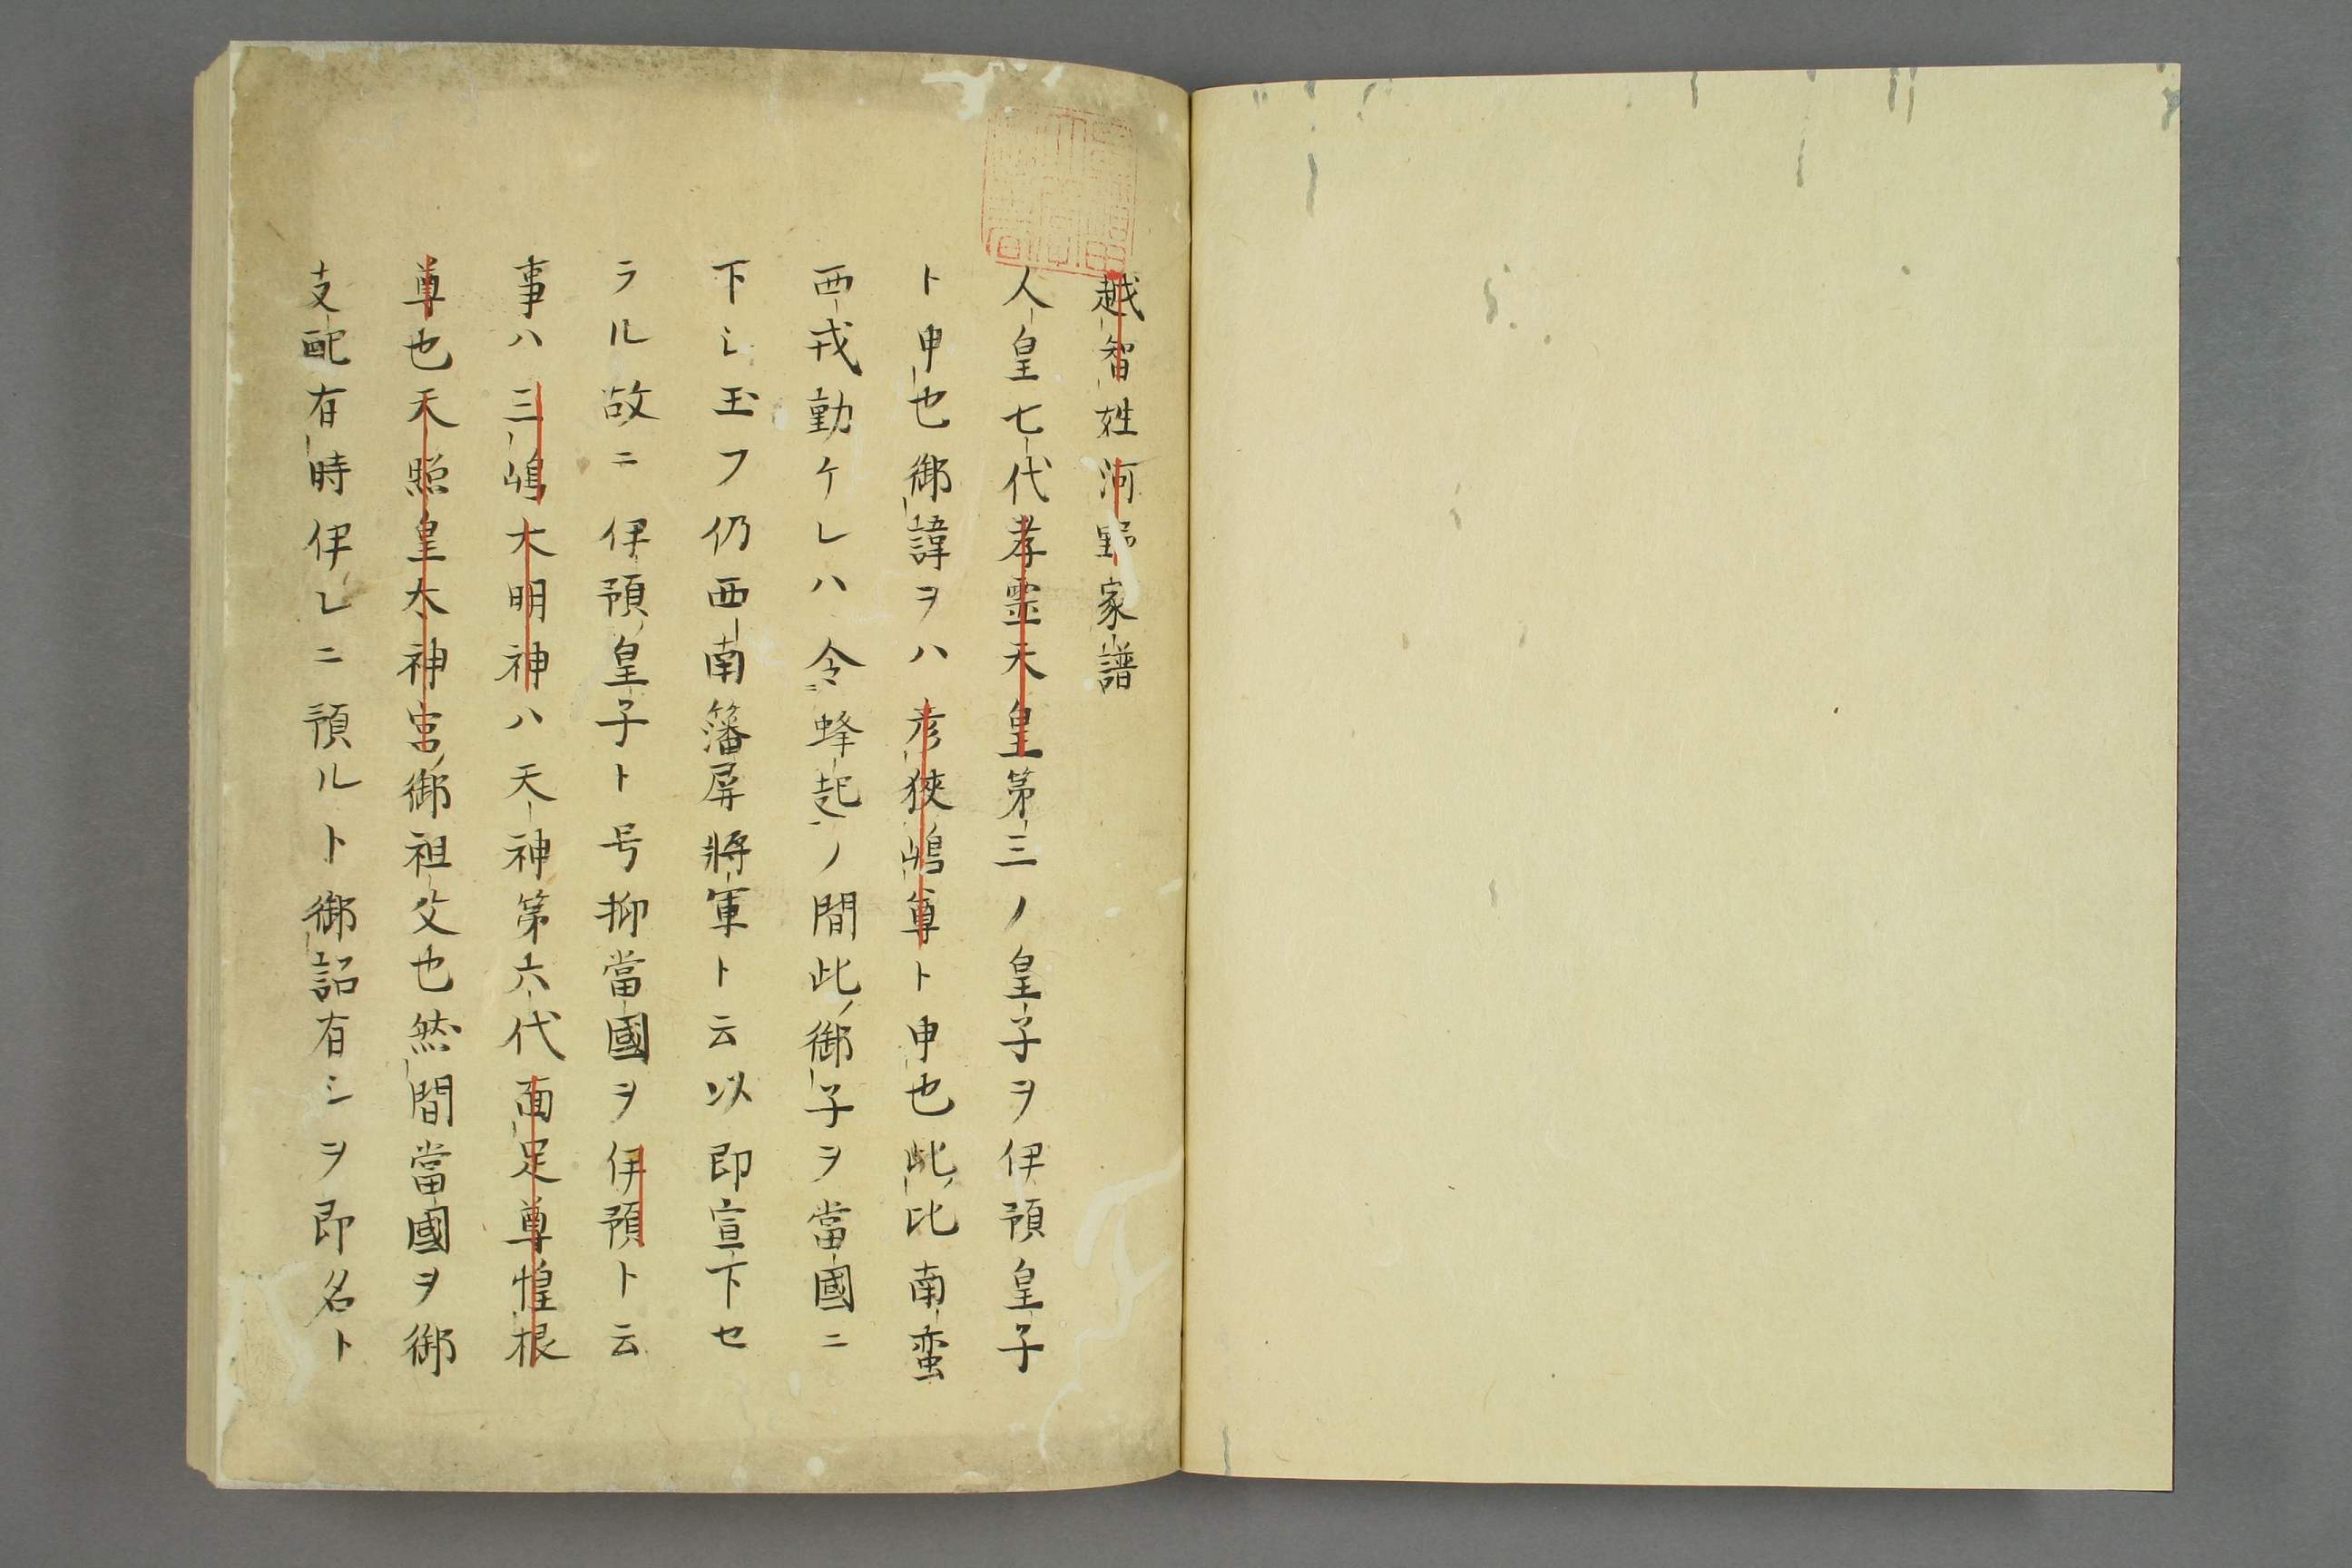 越智姓河野家譜
人皇七代孝霊天皇第三ノ皇子ヲ伊預皇子
ト申也御諱ヲハ彦狹嶋尊ト申也此比南蛮
西戎動ケレハ令蜂起ノ間此御子ヲ當國ニ
下シ玉フ仍西南籓屏將軍ト云以即宣下セ
ラル故ニ伊預皇子ト号抑當國ヲ伊預ト云
事ハ三嶋大明神ハ天神第六代面足尊惶根
尊也天照皇大神宮御祖父也然間當國ヲ御
支配有時伊レニ預ルト御詔有シヲ即名ト